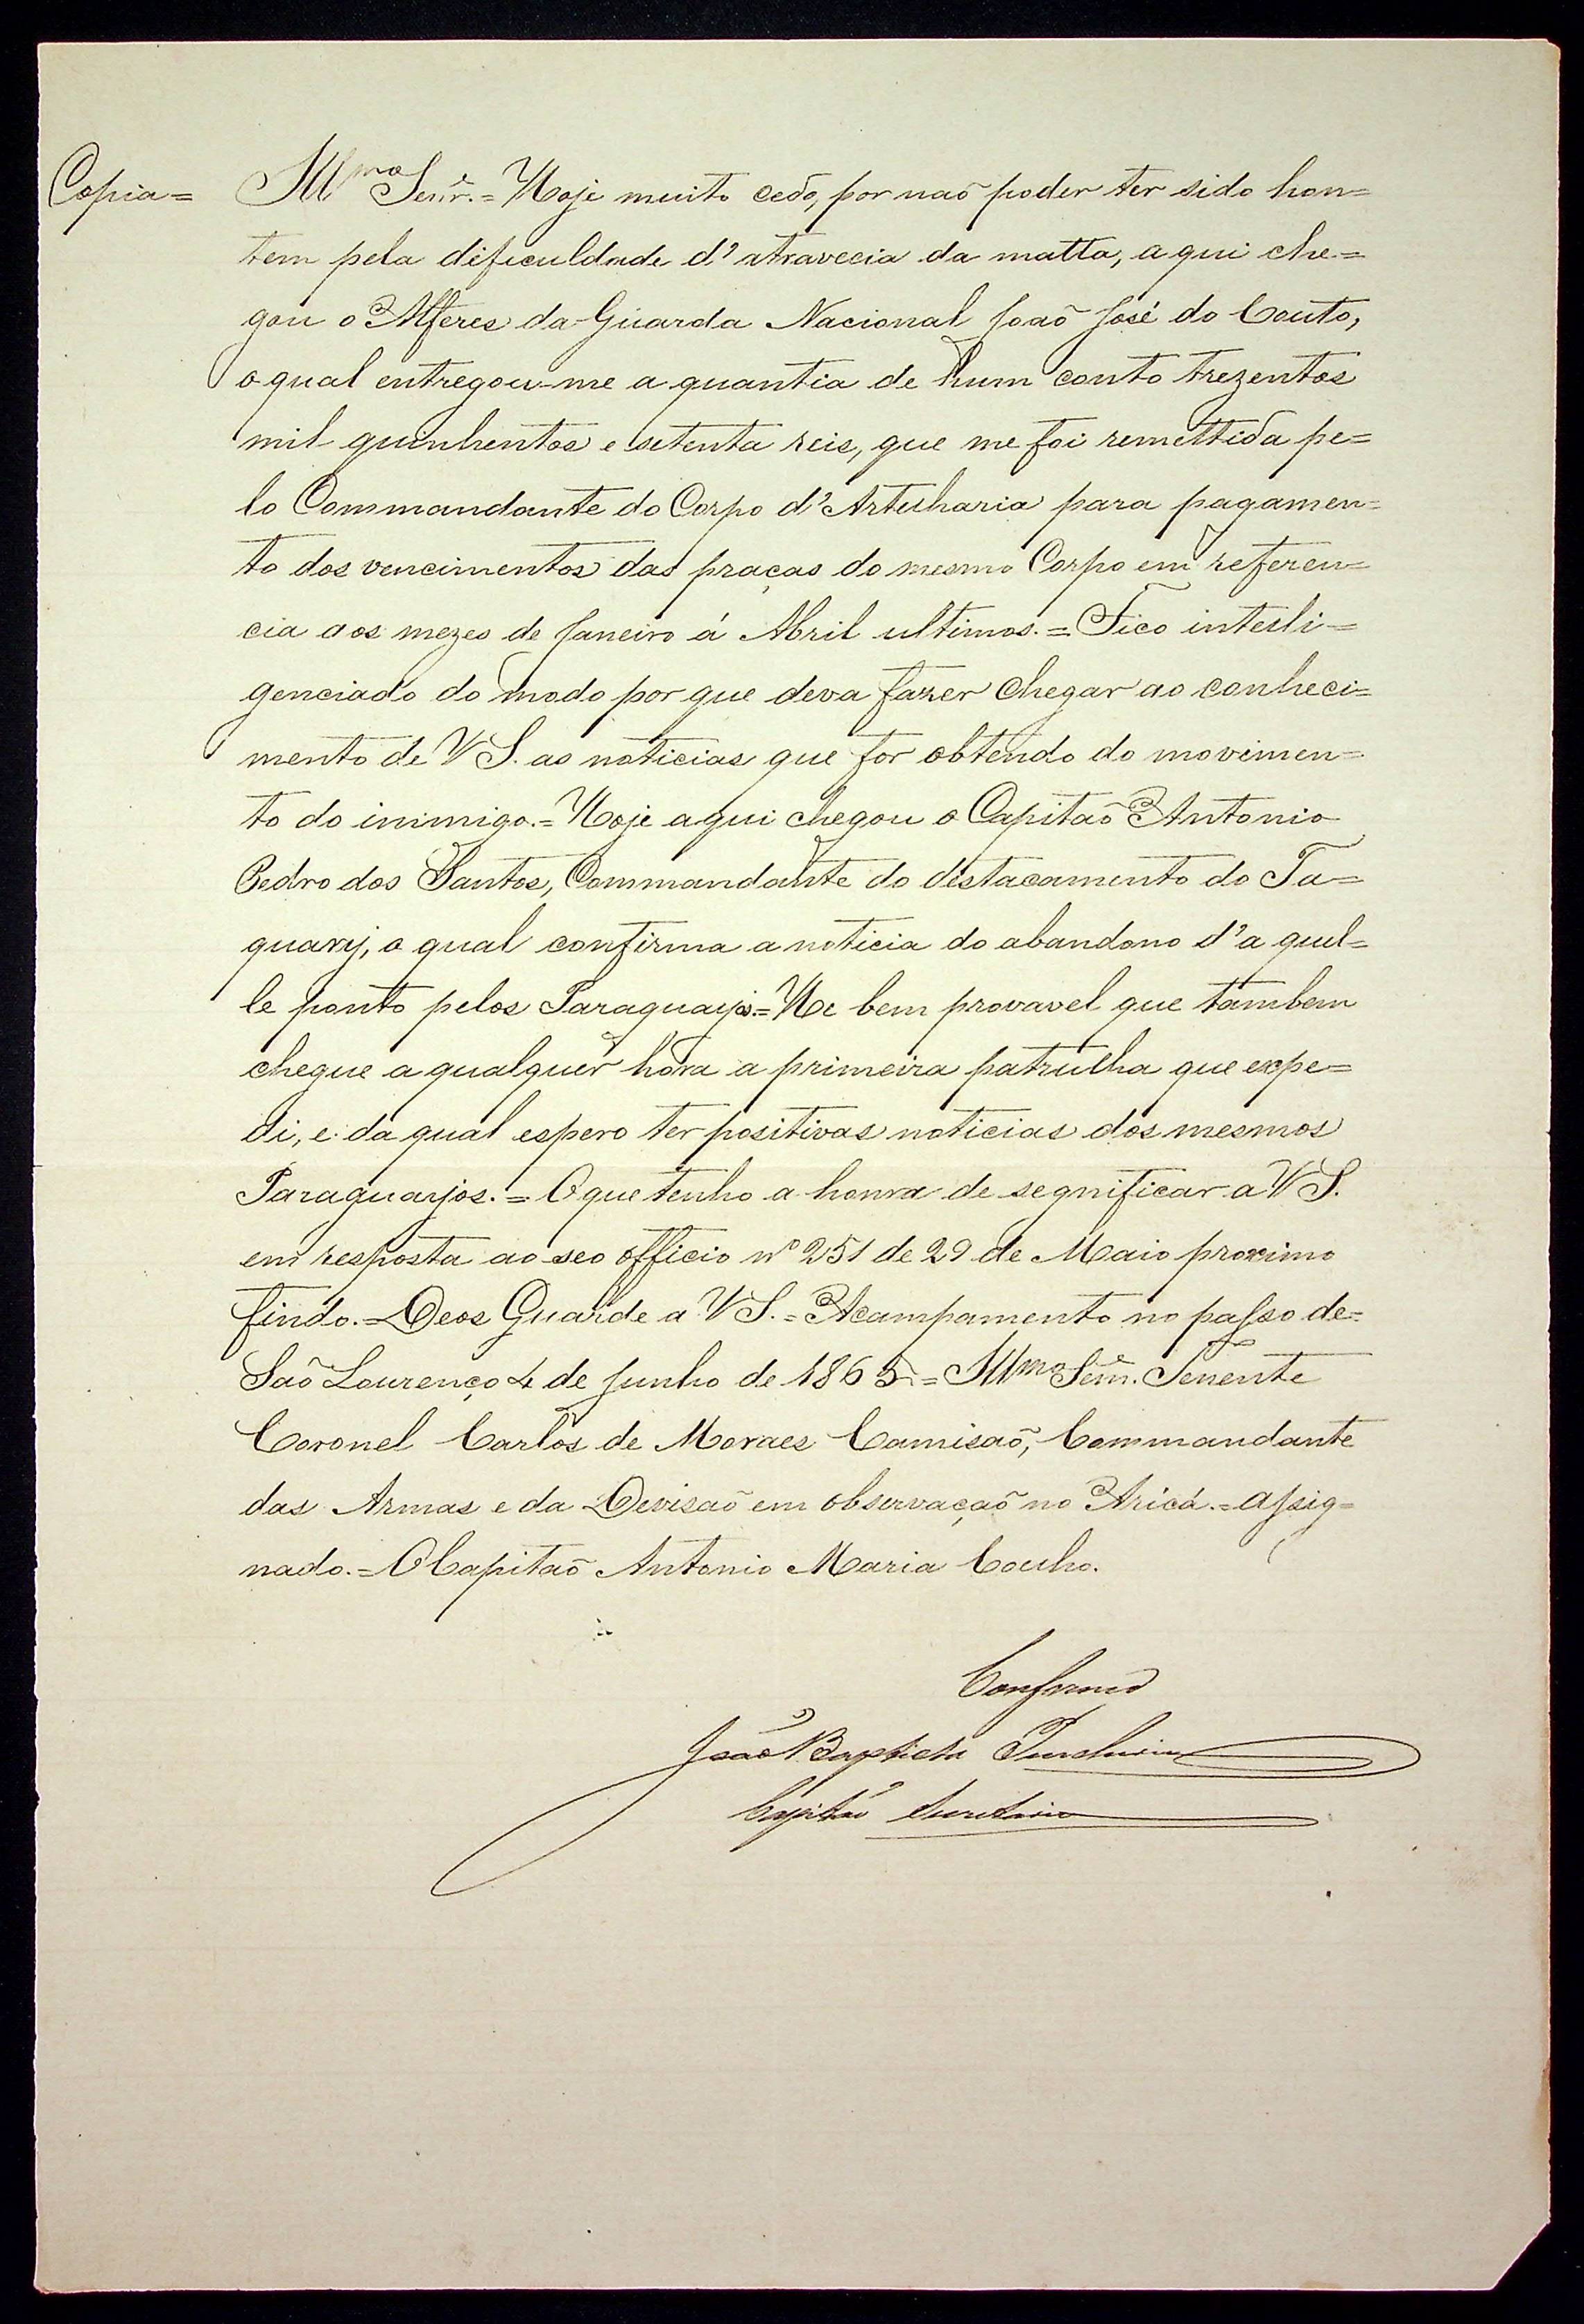 Copia= Illmo Senr.= Hoje muito cedo, por naõ poder ter sido hon=
tem pela dificuldade d'atravecia da matta, aqui che=
gou o Alferes da Guarda Nacional Joaõ José do Couto,
o qual entregou-me a quantia de hum conto trezentos
mil quinhentos e setenta reis, que me foi remettida pe=
lo Commandante do Corpo d'Artelharia para pagamen=
to dos vencimentos das praças do mesmo Corpo em referen=
cia aos mezes de Janeiro á Abril ultimos.= Fico intelli=
genciado do modo por que deva fazer chegar ao conheci=
mento de V S. as noticias que for obtendo do movimen=
to do inimigo.= Hoje aqui chegou o Capitaõ Antonio
Pedro dos Santos, Commandante do destacamento do Ta=
quary, o qual confirma a noticia do abandono d'aquel=
le ponto pelos Paraguayos.= He bem provavel que tambem
chegue a qualquer hora a primeira patrulha que expe=
di, e da qual espero ter positivas noticias dos mesmos
Paraguayos.= O que tenho a honra de segnificar a V S.
em resposta ao seo officio nº 251 de 29 de Maio proximo
findo.= Deos Guarde a V S.= Acampamento no passo de=
Saõ Lourenço 4 de Junho de 1865= Illmo Senr. Tenente
Coronel Carlos de Moraes Camisaõ, Commandante
das Armas e da Devisaõ em observaçaõ no Aricá.= assig=
nado.= O Capitaõ Antonio Maria Coelho.
Conforme
João Baptista
Capitão Secretario